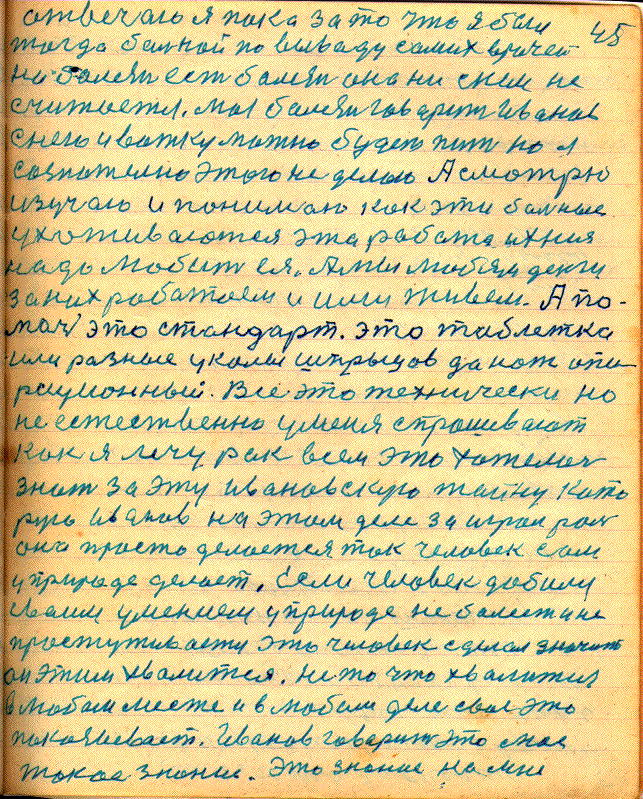 45
отвечаю я пока за то что я был
тогда болной по вываду самих врачей
но болезн ест болезн она ни с ким не
считается. Моя болезн говарит Иванов
с него и воткумотно будет пит но я
созпателно этого не делаю А смотрю
изучаю и понимаю как эти болные
ухотиваются эта работа ихния
надо любит ея. А мы любим денги
за них работаем и ими тивем. А по-
моч это стандарт. это таблетка
или разные уколы шпрыцов да нож опи
рационный. Все это технически но
не естественно у меня спрашивают
как я лечу рак всем это хателос
знат за эту Ивановскую тайну като
рую Иванов на этом деле заиграл рол
она просто делается так человек сам
у природе делает. Если человек добилси
своим умением у природе не болет и не
простутиваеть это человек сделал значить
он этим хвалится. Не то что хвалится
в любом месте и в любом деле свое это
показивает. Иванов говарит это мое
такое знание. Это знание на мне